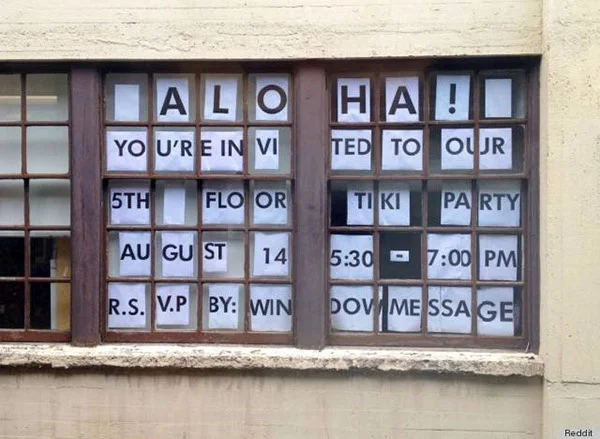 ALOHA!
YOU'RE INVITED TO OUR
5TH FLOOR TIKI PARTY
AUGUST 14 5:30 - 7:00 PM
R.S.V.P BY: WINDOW MESSAGE
Reddit